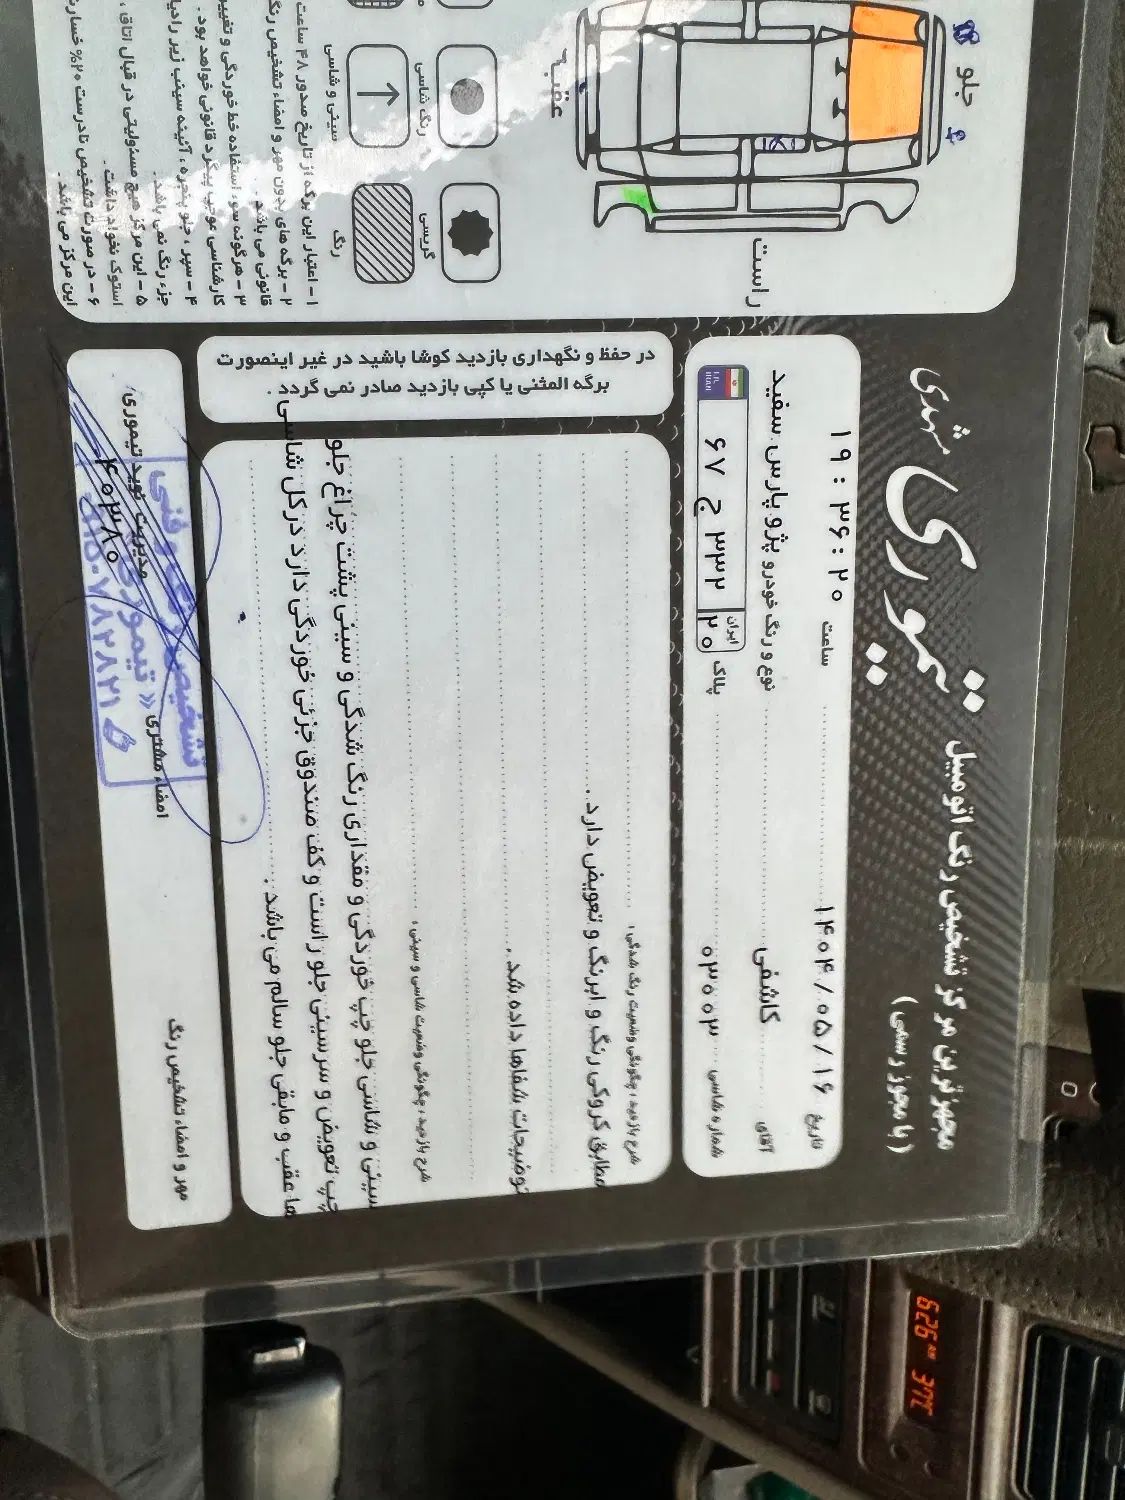 تیموری
مشهدی
مجهزترین مرکز تشخیص رنگ اتومبیل
( با مجوز رسمی )
تاریخ ۱۴۰۴/۰۵/۱۶ ساعت ۱۹:۳۶:۲۰
آقای کاشفی نوع و رنگ خودرو پژو پارس سفید
شماره شاسی ۰۳۰۰۳ پلاک
I.R. IRAN
۶۷ ج ۳۳۲ ایران ۲۰
شرح بازدید ، چگونگی وضعیت رنگ شدگی :
مطابق کروکی رنگ و ابرنگ و تعویض دارد .
توضیحات شفاها داده شد .
شرح بازدید ، چگونگی وضعیت شاسی و سینی :
سینی و شاسی جلو چپ خوردگی و مقداری رنگ شدگی و سینی پشت چراغ جلو
چپ تعویض و سرسینی جلو راست و کف صندوق جزئی خوردگی دارد درکل شاسی
ها عقب و مابقی جلو سالم می باشد .
مهر و امضاء تشخیص رنگ
امضاء مشتری
مدیریت نوید تیموری
۴۰۳۸۰
تشخیص رنگ و فنی
« تیموری
در حفظ و نگهداری بازدید کوشا باشید در غیر اینصورت
برگه المثنی یا کپی بازدید صادر نمی گردد .
جلو
عقب
راست
رنگ شاسی
گریسی
سینی و شاسی
رنگ
۱ - اعتبار این برگه از تاریخ صدور ۴۸ ساعت
۲ - برگه های بدون مهر و امضاء تشخیص رنگ
قانونی می باشد .
۳ - هرگونه سوء استفاده خط خوردگی و تغییر
کارشناسی موجب پیگرد قانونی خواهد بود .
۴ - سپر ، جلو پنجره ، آئینه سینی زیر رادیا
جزء رنگ نمی باشد .
۵ - این مرکز هیچ مسئولیتی در قبال اتاق ،
استوک نخواهد داشت .
۶ - در صورت تشخیص نادرست ۲۰% خسارت
این مرکز می باشد .
626 37°C